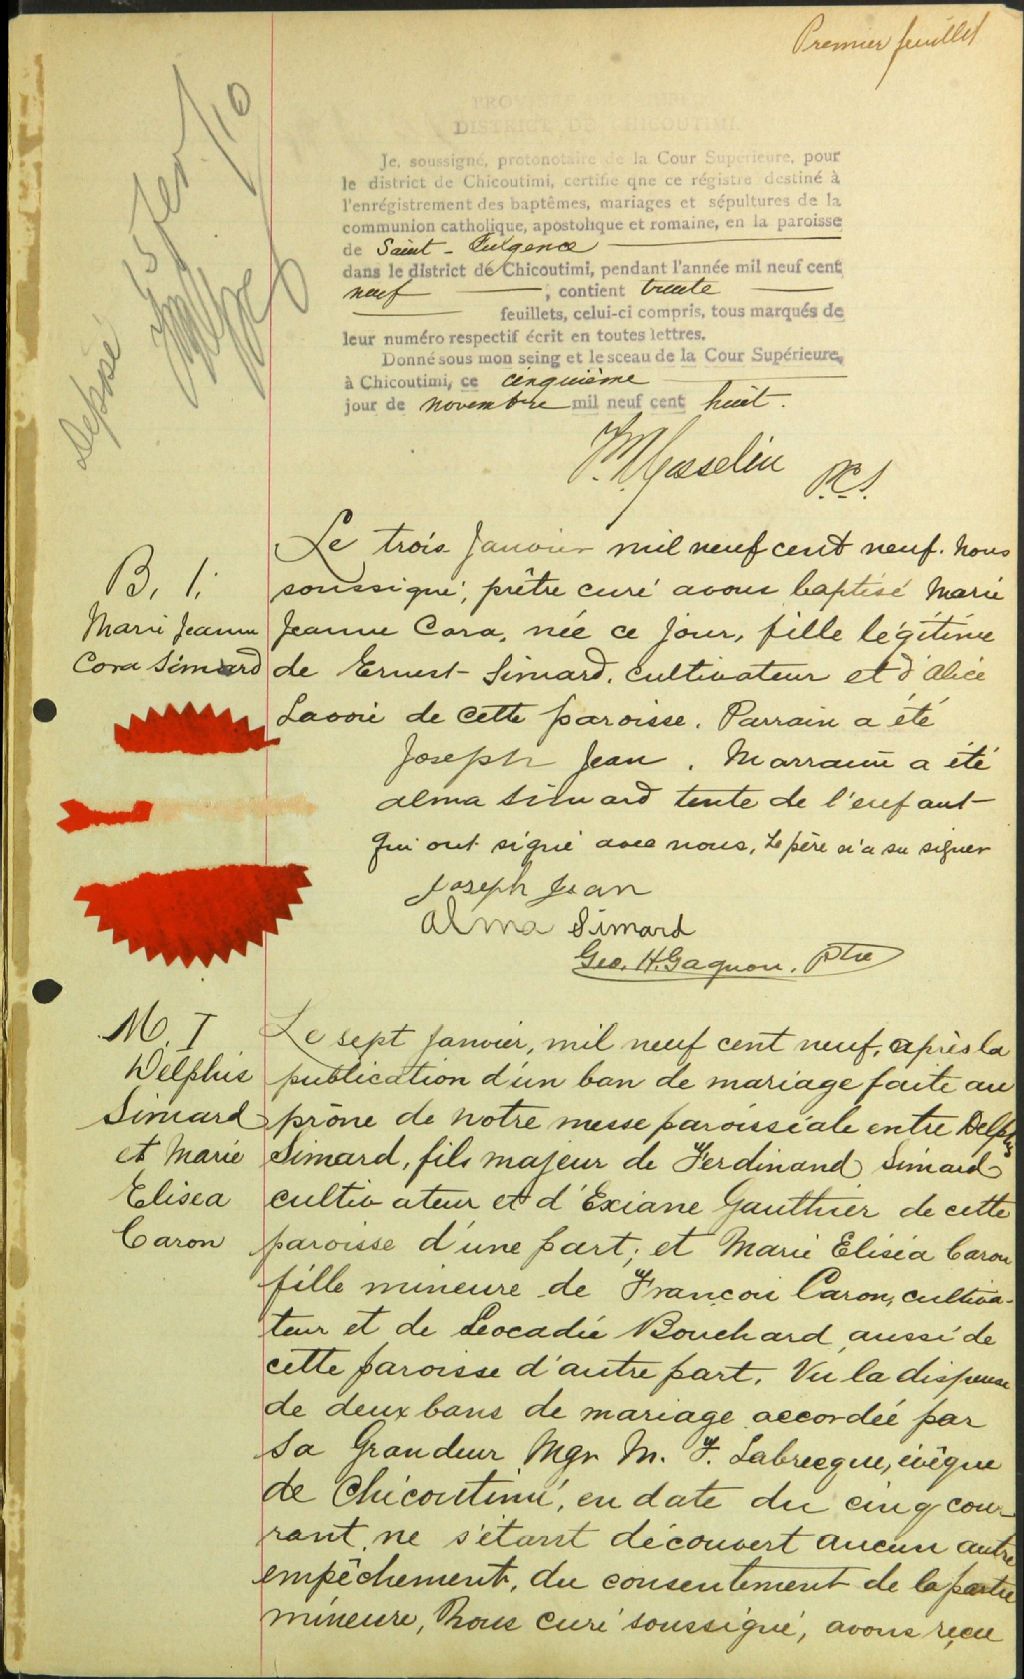 Premier feuillet
PROVINCE DE QUEBEC
DISTRICT DE CHICOUTIMI
Je, soussigné, protonotaire de la Cour Supérieure, pour
le district de Chicoutimi, certifie qne ce régistre destiné à
l'enrégistrement des baptêmes, mariages et sépultures de la
communion catholique, apostolique et romaine, en la paroisse
de Saint-Fulgence
dans le district de Chicoutimi, pendant l'année mil neuf cent
neuf ; contient trente
feuillets, celui-ci compris, tous marqués de
leur numéro respectif écrit en toutes lettres.
Donné sous mon seing et le sceau de la Cour Supérieure,
à Chicoutimi, ce cinquième
jour de novembre mil neuf cent huit.
Déposé
15 fev /10
Gosselin P.C.S.
B. 1.
Marie Jeanne
Cora Simard
Le trois Janvier mil neuf cent neuf. Nous
soussigné, prêtre curé avons baptisé Marie
Jeanne Cora, née ce jour, fille légitime
de Ernest Simard, cultivateur et d'Alice
Lavoie de cette paroisse. Parrain a été
Joseph Jean. Marraine a été
Alma Simard tente de l'enfant
qui ont signé avec nous, Le père n'a su signer
Joseph Jean
Alma Simard
Geo. H. Gagnon. Ptre
M. I
Delphis
Simard
et Marie
Elisea
Caron
Le sept Janvier, mil neuf cent neuf, après la
publication d'un ban de mariage faite au
prône de notre messe paroissiale entre Delphis
Simard, fils majeur de Ferdinand Simard
cultivateur et d'Exiane Gauthier de cette
paroisse d'une part; et Marie Eliséa Caron
fille mineure de François Caron, cultiva-
teur et de Léocadie Bouchard aussi de
cette paroisse d'autre part. Vu la dispense
de deux bans de mariage accordée par
Sa Grandeur Mgr M. T. Labrecque, évêque
de Chicoutimi, en date du cinq cou-
rant, ne s'étant découvert aucun autre
empêchement, du consentement de la partie
mineure, Nous curé soussigné, avons reçu